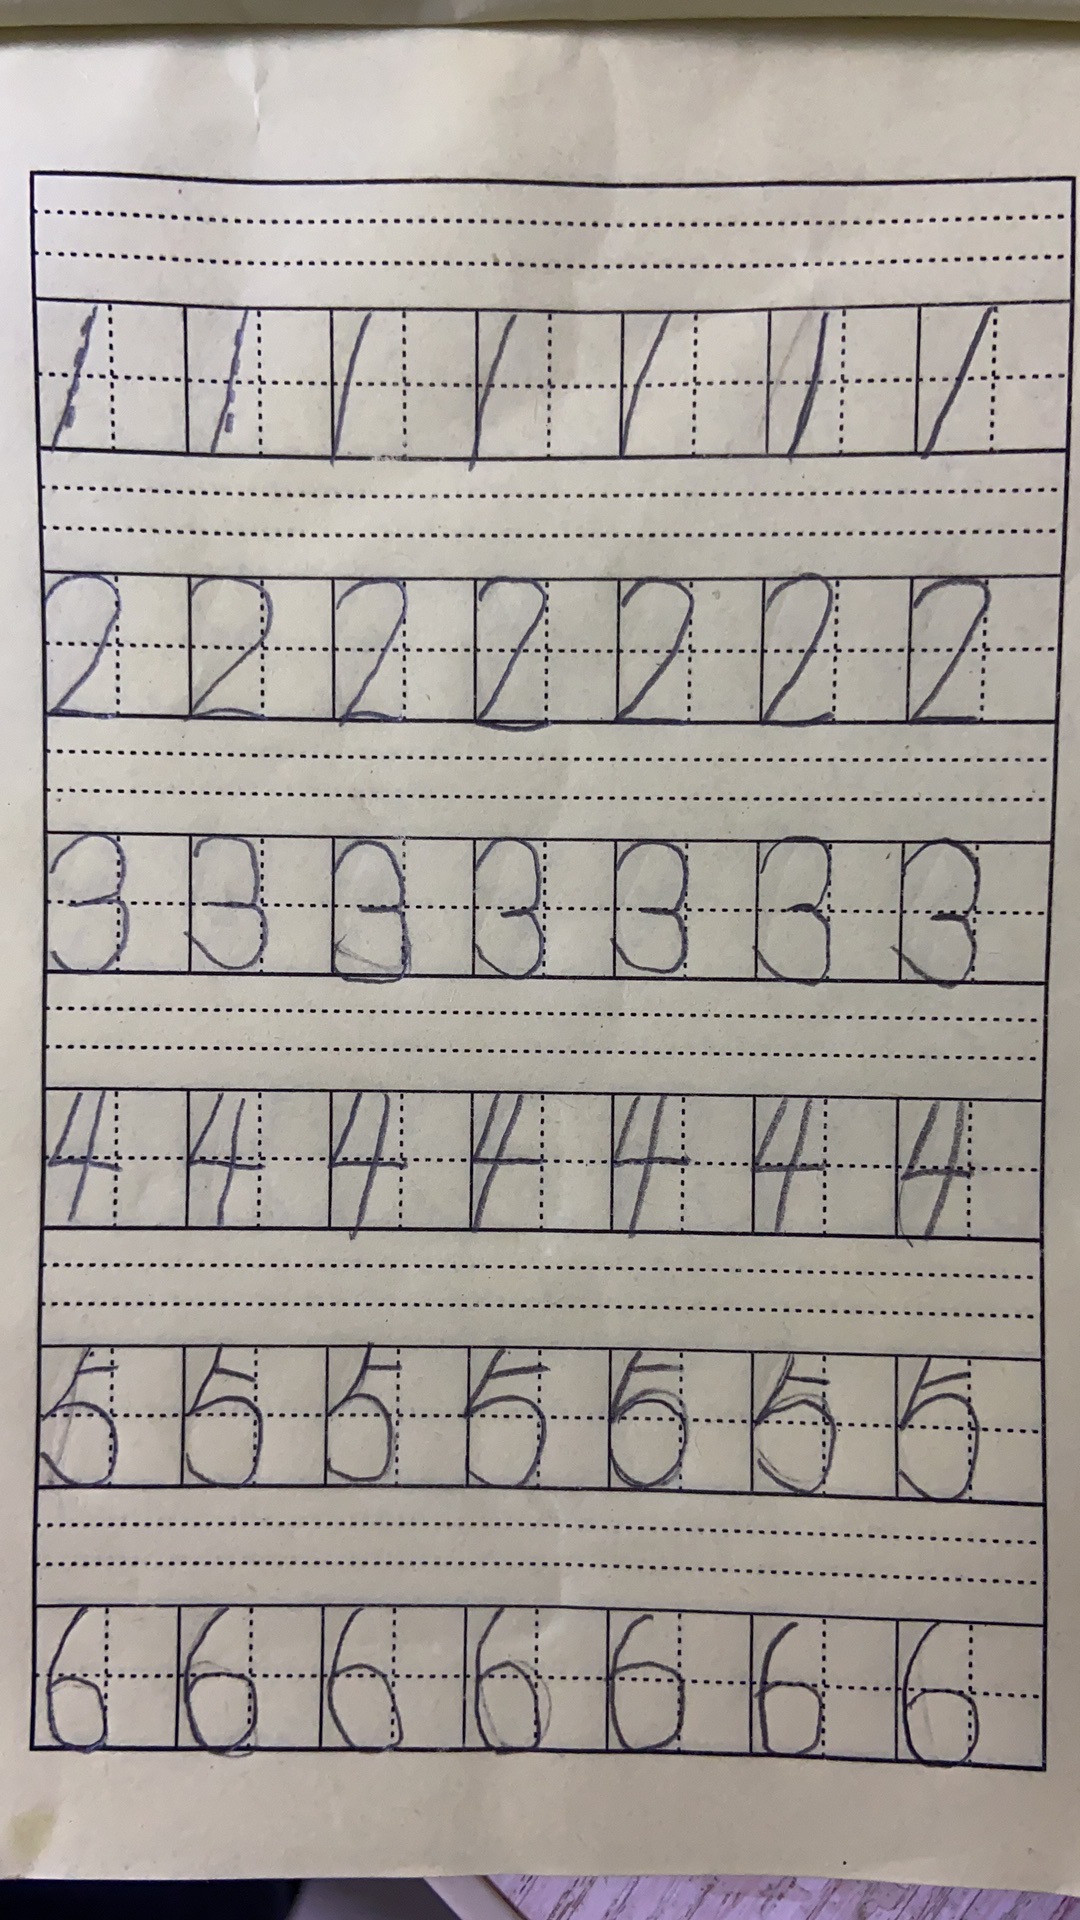 1 1 1 1 1 1 1
2 2 2 2 2 2 2
3 3 3 3 3 3 3
4 4 4 4 4 4 4
5 5 5 5 5 5 5
6 6 6 6 6 6 6